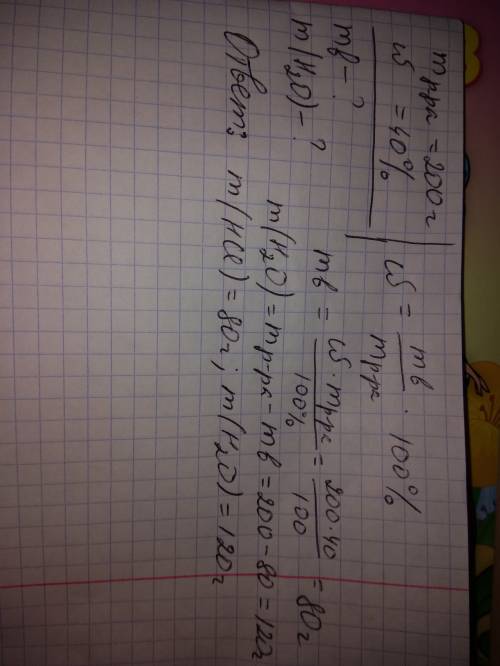 mр-ра = 200г
ω = 40%
mв - ?
m(H₂O) - ?
ω = mв/mр-ра · 100%
mв = ω · mр-ра/100% = 200·40/100 = 80г
m(H₂O) = mр-ра - mв = 200 - 80 = 120г
Ответ: m(HCl) = 80г; m(H₂O) = 120г